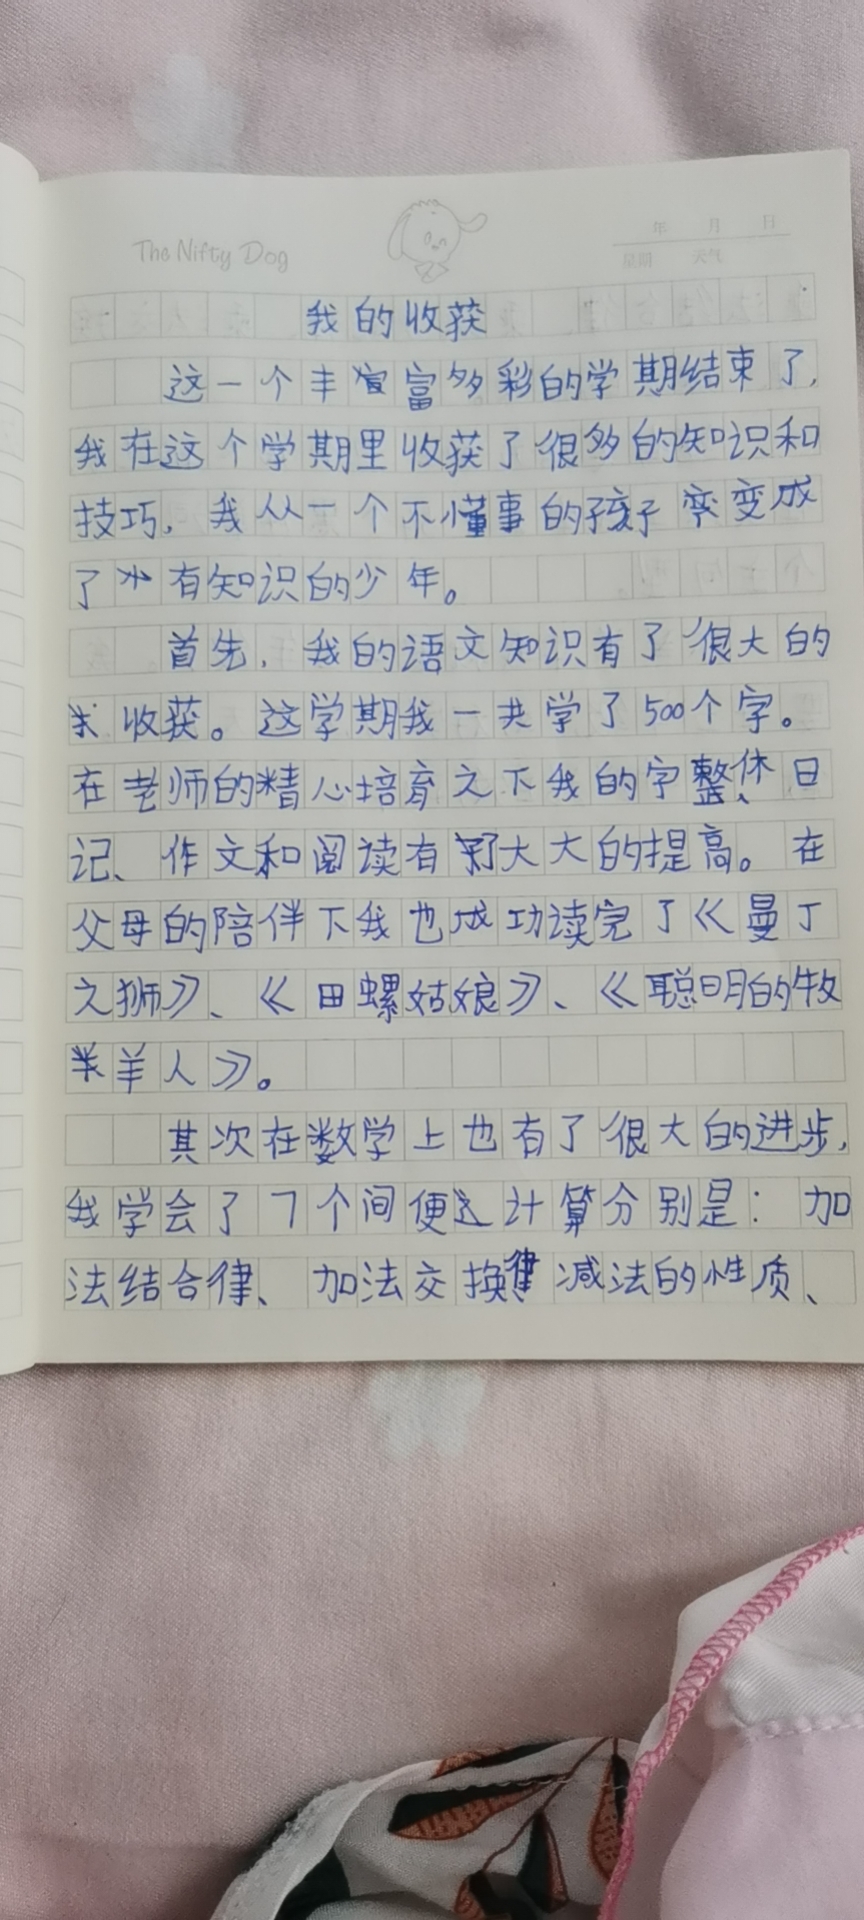 The Nifty Dog
年 月 日
星期 天气
我的收获
这一个丰富多彩的学期结束了,
我在这个学期里收获了很多的知识和
技巧,我从一个不懂事的孩子变成
了有知识的少年。
首先,我的语文知识有了很大的
收获。这学期我一共学了500个字。
在老师的精心培育之下我的字整体、日
记、作文和阅读有了大大的提高。在
父母的陪伴下我也成功读完了《曼丁
之狮》、《田螺姑娘》、《聪明的牧
羊人》。
其次在数学上也有了很大的进步,
我学会了7个间便计算分别是:加
法结合律、加法交换律、减法的性质、